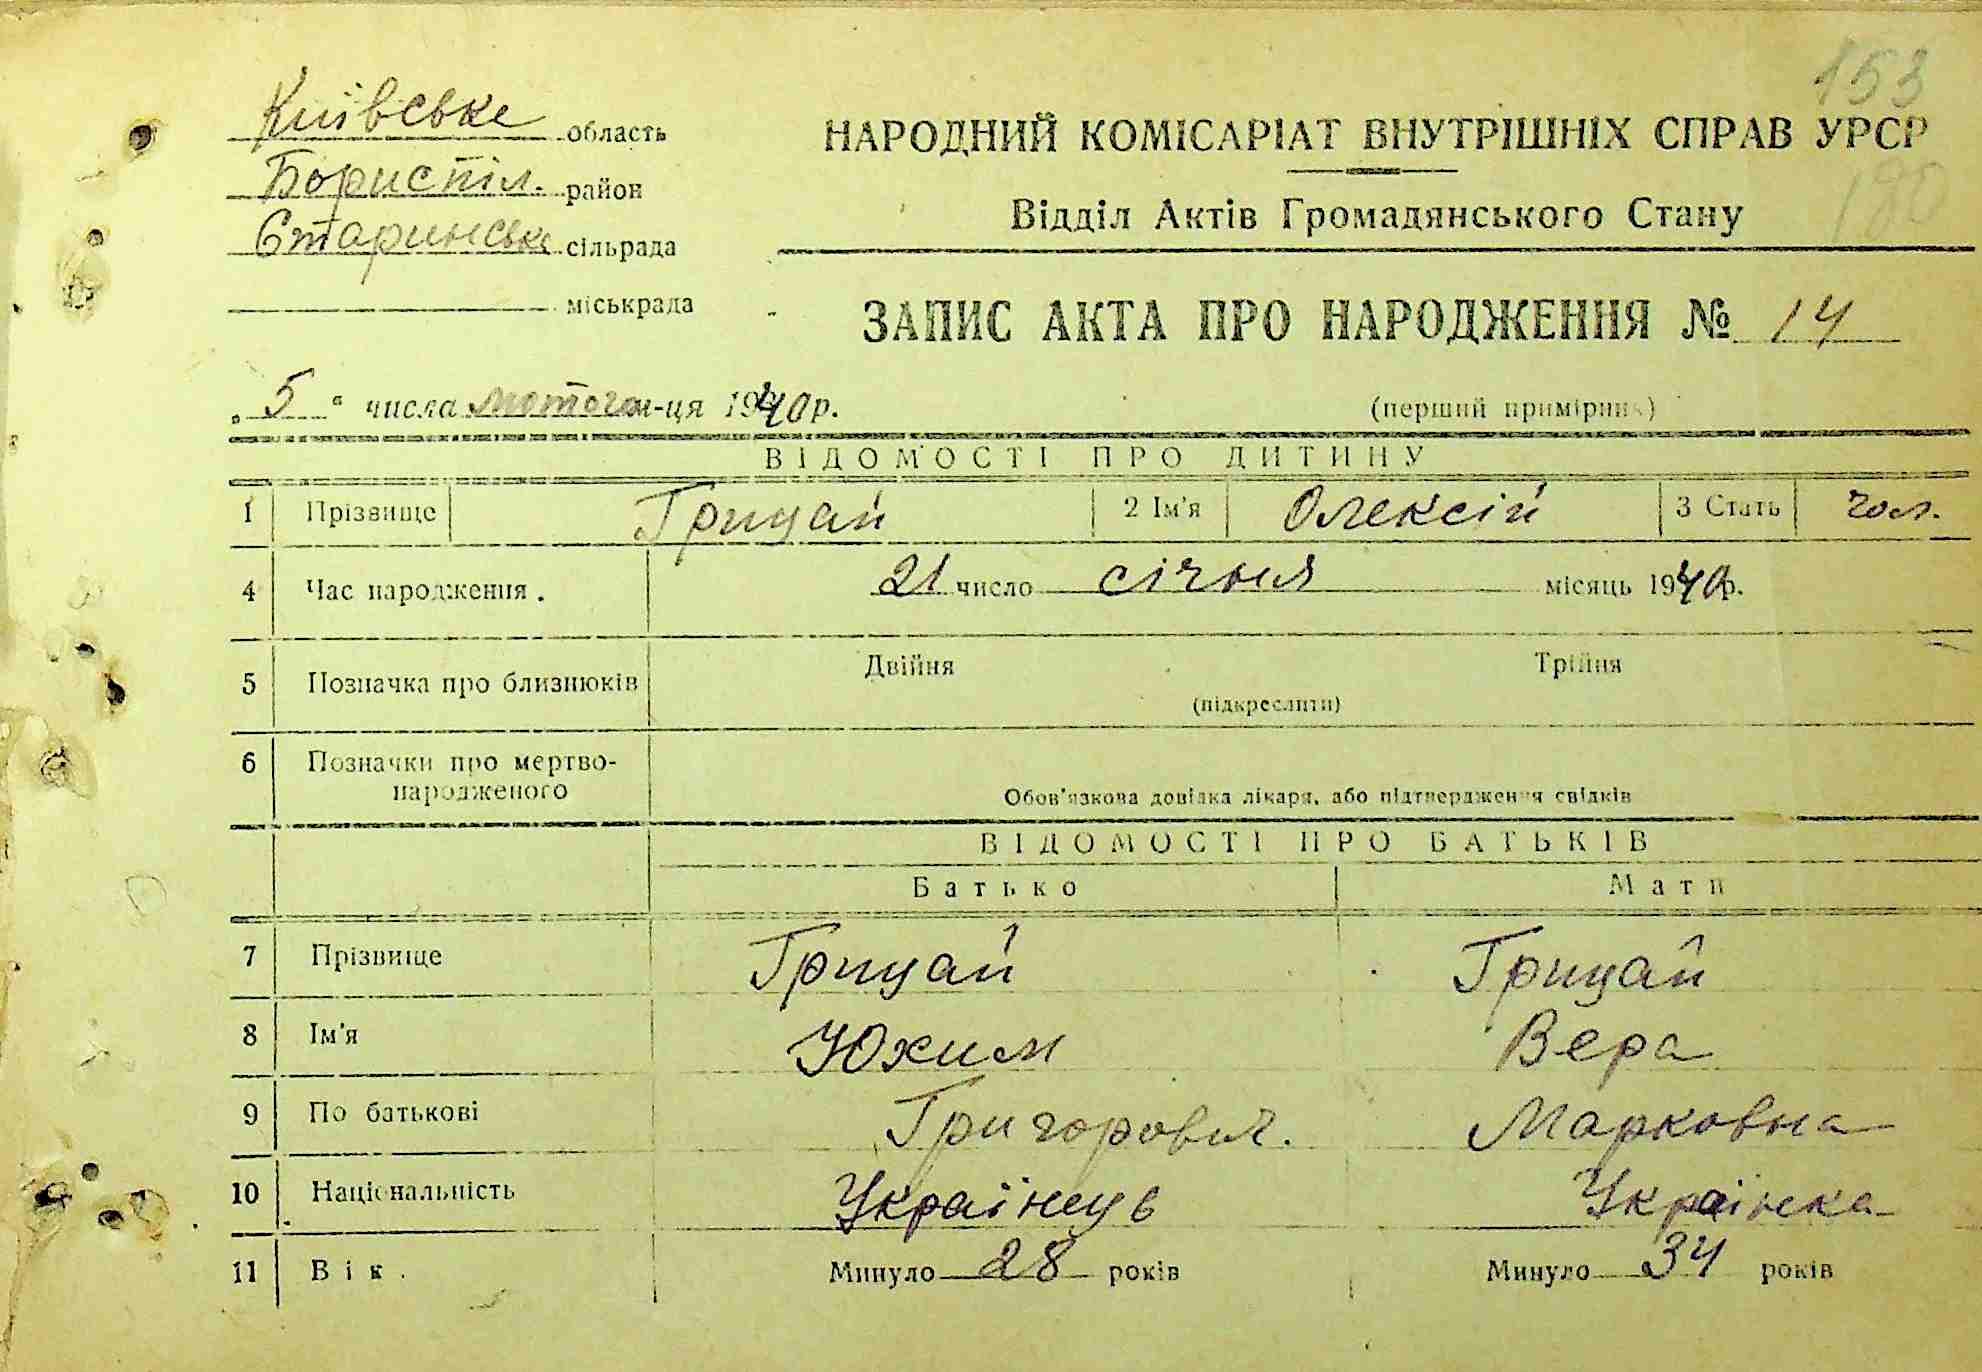 153
Київське область
НАРОДНИЙ КОМІСАРІАТ ВНУТРІШНІХ СПРАВ УРСР
Бориспіл. район
180
Відділ Актів Громадянського Стану
Старинське сільрада
міськрада
ЗАПИС АКТА ПРО НАРОДЖЕННЯ № 14
„ 5 “ числа лютого м-ця 1940 р.
(перший примірник)
ВІДОМОСТІ ПРО ДИТИНУ
1 Прізвище Грицай 2 Ім'я Олексій 3 Стать чол.
4 Час народження . 21 число січня місяць 1940 р.
5 Позначка про близнюків Двійня Трійня
(підкреслити)
6 Позначки про мертво-
народженого
Обов'язкова довідка лікаря, або підтвердження свідків
ВІДОМОСТІ ПРО БАТЬКІВ
Батько Мати
7 Прізвище Грицай Грицай
8 Ім'я Юхим Вера
9 По батькові Григорович. Марковна
10 Національність Українець Українка
11 Вік . Минуло 28 років Минуло 34 років